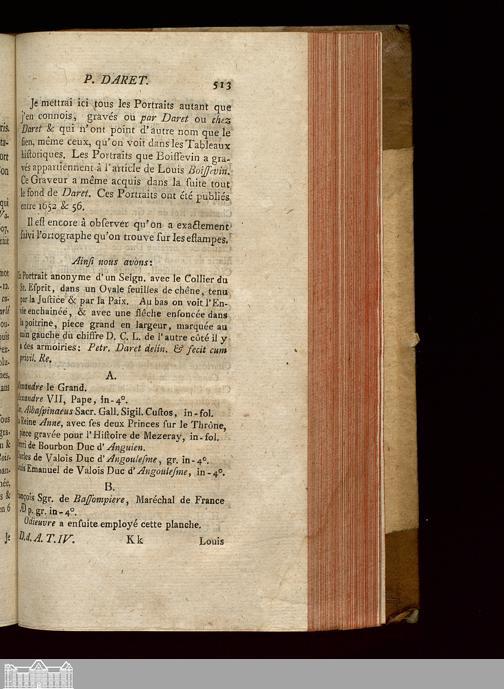 P. DARET. 513
Je mettrai ici tous les Portraits autant que
j'en connois, gravés ou par Daret ou chez
Daret & qui n'ont point d'autre nom que le
sien, même ceux, qu'on voit dans les Tableaux
historiques. Les Portraits que Boissevin a gra-
vés appartiennent à l'article de Louis Boissevin.
Ce Graveur a même acquis dans la suite tout
le fond de Daret. Ces Portraits ont été publiés
entre 1652 & 56.
Il est encore à observer qu'on a exactement
suivi l'ortographe qu'on trouve sur les estampes.
Ainsi nous avons:
Portrait anonyme d'un Seign. avec le Collier du
St. Esprit, dans un Ovale feuilles de chêne, tenu
par la Justice & par la Paix. Au bas on voit l'En-
vie enchainée, & avec une fléche enfoncée dans
la poitrine, piece grand en largeur, marquée au
coin gauche du chiffre D. C. L. de l'autre côté il y
a des armoiries: Petr. Daret delin. & fecit cum
privil. Re.
A.
Alexandre le Grand.
Alexandre VII, Pape, in-4°.
Albaspinaeus Sacr. Gall. Sigil. Custos, in-fol.
La Reine Anne, avec ses deux Princes sur le Thrône,
piece gravée pour l'Histoire de Mezeray, in-fol.
Henri de Bourbon Duc d'Anguien.
Charles de Valois Duc d'Angoulesme, gr. in-4°.
Louis Emanuel de Valois Duc d'Angoulesme, in-4°.
B.
François Sgr. de Bassompiere, Maréchal de France
p. gr. in-4°.
Odieuvre a ensuite employé cette planche.
D. d. A. T. IV. Kk Louis